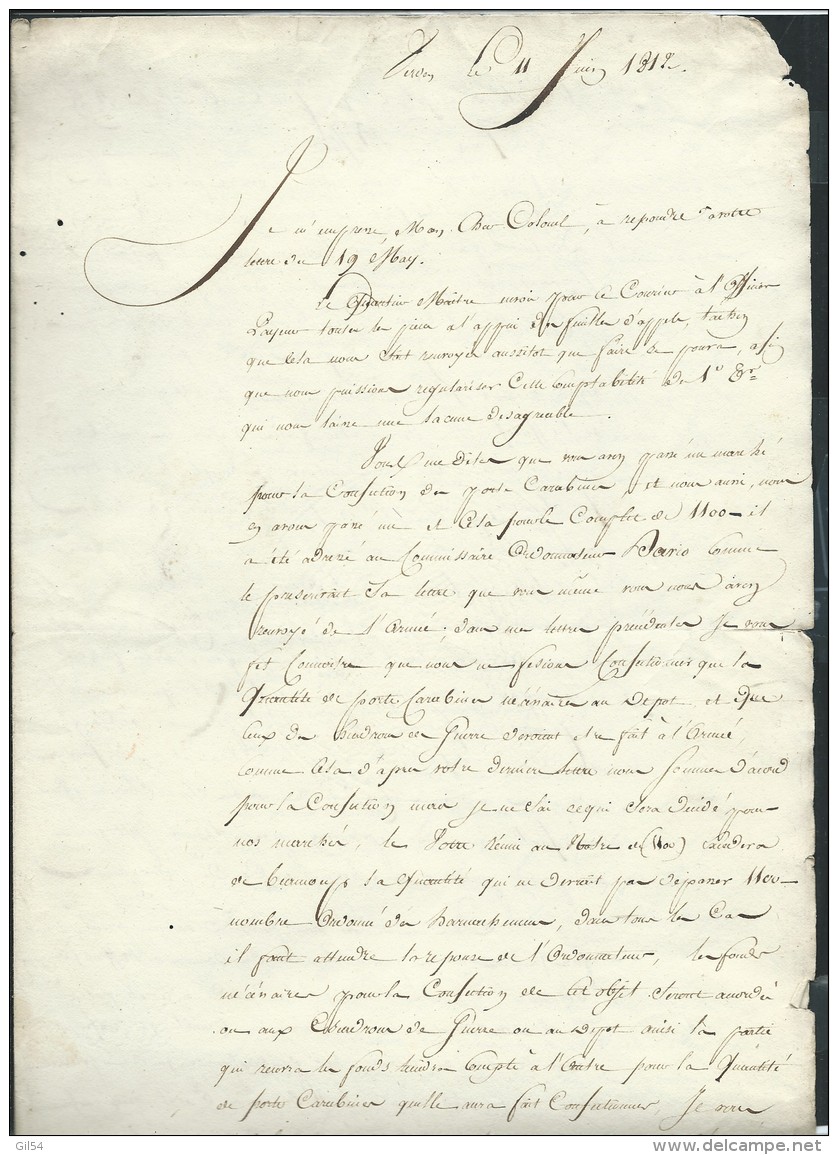 le 11 Juin 1812.
Je m'empresse, Mon Cher Colonel, à repondre à votre
lettre du 19 May.
Le Quartier Maître envoie pour le Courier à l'Officier
Payeur toutes les pieces à l'appui des feuilles d'appels, tachez
que cela nous soit renvoyer aussitot que faire se poura, afin
que nous puissions regulariser cette Comptabilité de 1er
qui nous laisse une lacune desagreable.
Vous me Dites que vous avez passé un marché
pour la Confection des porte Carabines, et nous aussi, nous
en avons passé un et cela pour le Complet de 1100 - il
a été adressé au Commissaire Ordonnateur Comme
le prescrivoit sa lettre que vous même vous nous avez
renvoyé de l'Armée; dans mes lettres précédentes Je vous
fit Connoitre que nous ne fesions Confectionner que la
Quantité de porte Carabines nécessaires au Depot, et que
ceux des Escadrons de Guerre seroient etre fait à l'Armée,
comme cela d'apres votre derniere lettre nous sommes d'acord
pour la Confection mais je ne sai ce qui sera decidé pour
nos marchés, le Votre réuni au Notre de (1100) excedera
de beaucoup la Quantité qui ne devroit pas dépasser 1100
nombre Ordonné des harnachemens, dans tous les Cas
il faut attendre la reponse de l'Ordonnateur, les fonds
nécessaires pour la Confection de cet objet seront accordés
ou aux Escadrons de Guerre ou au Depot ainsi la partie
qui recevra les fonds tiendra Compte à l'Autre pour la Quantité
de porte Carabines qu'elle aura fait Confectionner, Je vous
Gil54
www.delcampe.net